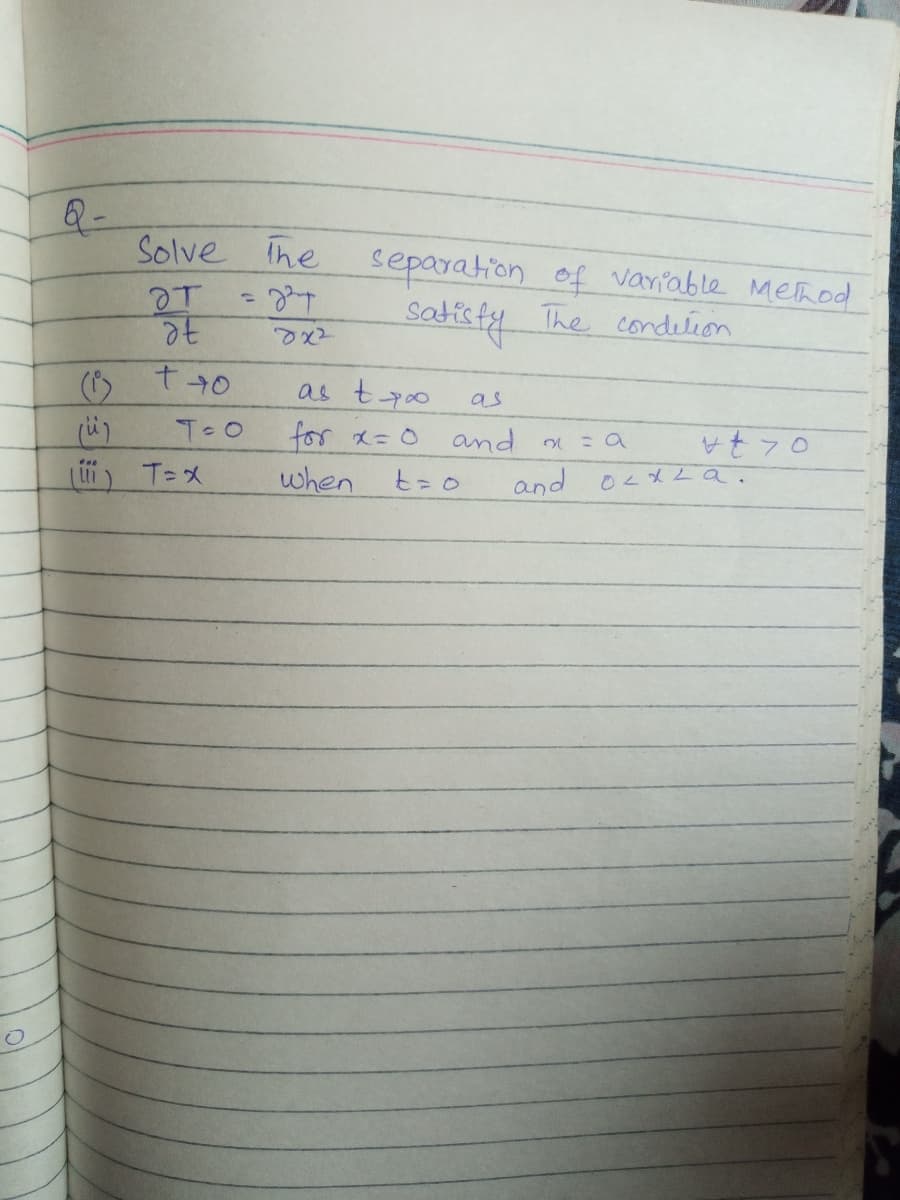 Q-
Solve The separation of variable Method
∂T/∂t = ∂²T/∂x² satisfy The condition
(i) T→0 as t→∞ as
(ii) T=0 for x=0 and x=a ∀t>0
(iii) T=x when t=0 and 0<x<a.
0